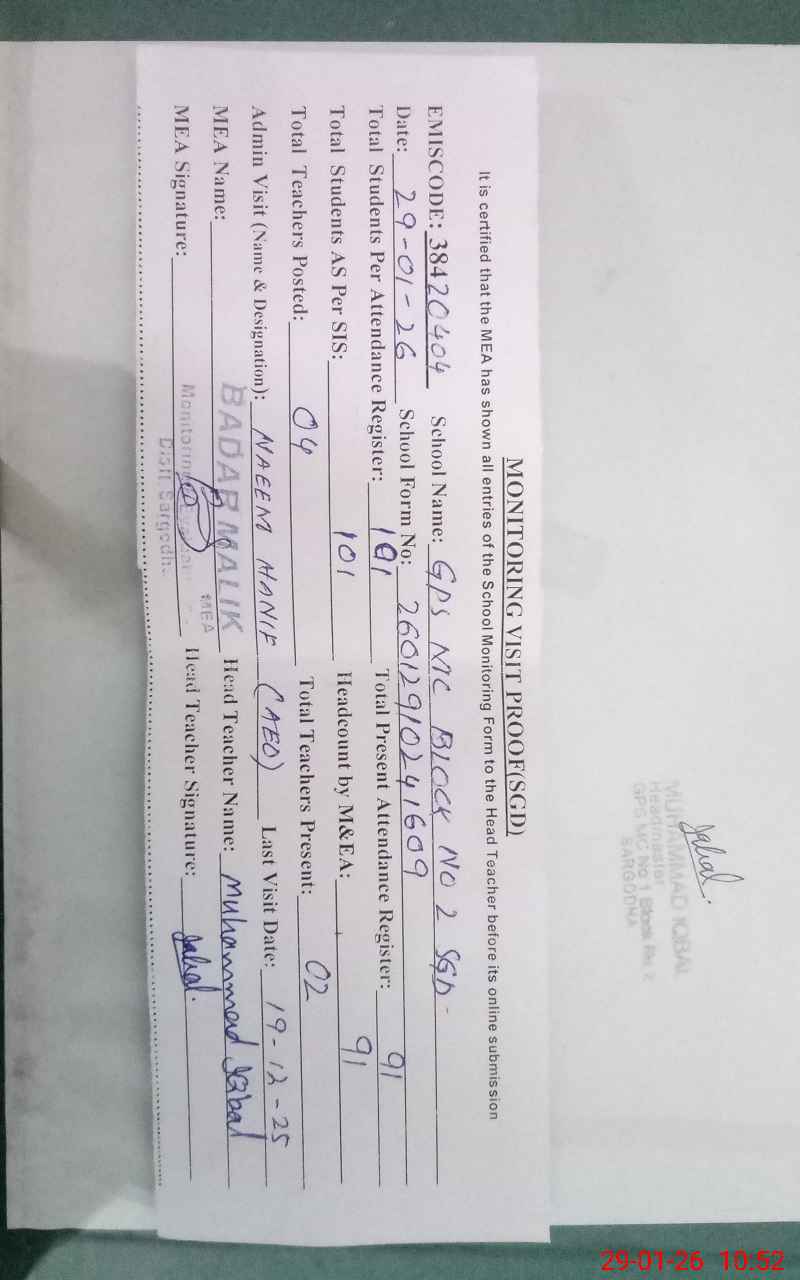 MONITORING VISIT PROOF(SGD)
It is certified that the MEA has shown all entries of the School Monitoring Form to the Head Teacher before its online submission
EMISCODE: 38420404 School Name: GPS MC BLOCK NO 2 SGD-
Date: 29-01-26 School Form No: 2601291024 1609
Total Students Per Attendance Register: 101 Total Present Attendance Register: 91
Total Students AS Per SIS: 101 Headcount by M&EA: 91
Total Teachers Posted: 04 Total Teachers Present: 02
Admin Visit (Name & Designation): NAEEM HANIF (AEO) Last Visit Date: 19-12-25
MEA Name: BADAR MALIK Head Teacher Name: Muhammad Iqbal
MEA
MEA Signature: Monitoring Head Teacher Signature: Iqbal.
Distt. Sargodha
Iqbal.
MUHAMMAD IQBAL
Headmaster
GPS MC No 1 Block No 2
SARGODHA
29-01-26 10:52